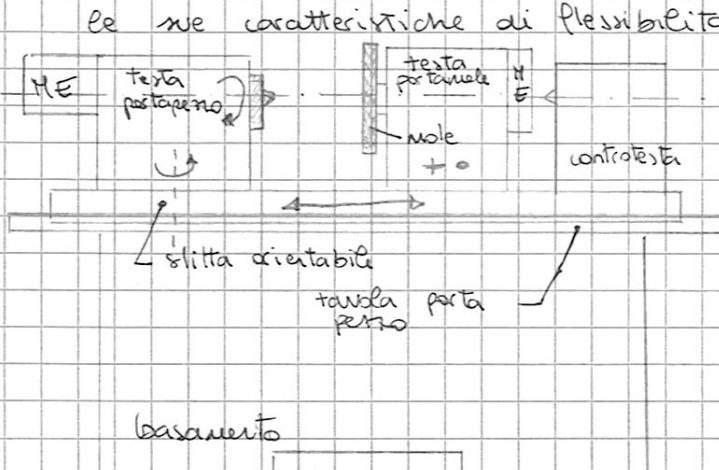 le sue caratteristiche di flessibilità
ME
testa
portapezzo
testa
portamole
ME
mole
controtesta
slitta orientabile
tavola porta
pezzo
basamento